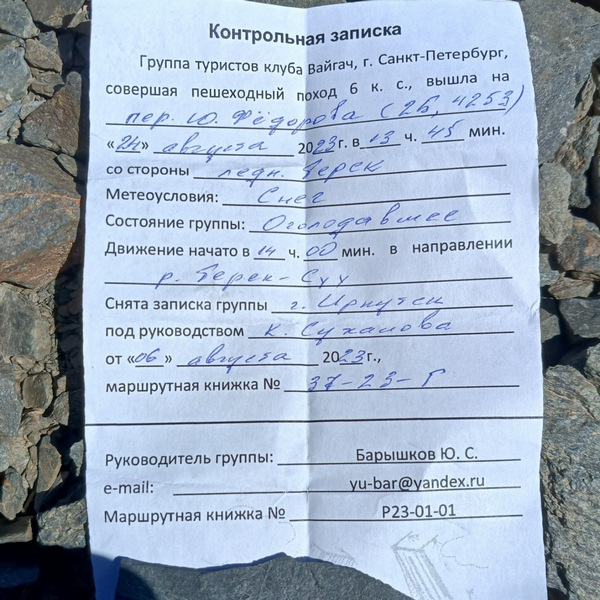 Контрольная записка
Группа туристов клуба Вайгач, г. Санкт-Петербург,
совершая пешеходный поход 6 к. с., вышла на
пер. Ю. Фёдорова (2Б, 4253)
«24» августа 2023г. в 13 ч. 45 мин.
со стороны ледн. Терек
Метеоусловия: Снег
Состояние группы: Оголодавшее
Движение начато в 14 ч. 00 мин. в направлении
р. Терек-Суу
Снята записка группы г. Иркутск
под руководством К. Суханова
от «06» августа 2023г.,
маршрутная книжка № 37-23-Г
Руководитель группы: Барышков Ю. С.
e-mail: yu-bar@yandex.ru
Маршрутная книжка № Р23-01-01